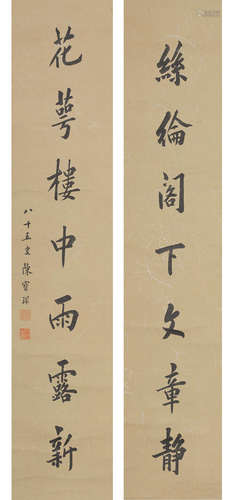 絲綸阁下文章静
花萼樓中雨露新
八十五叟陳寶琛